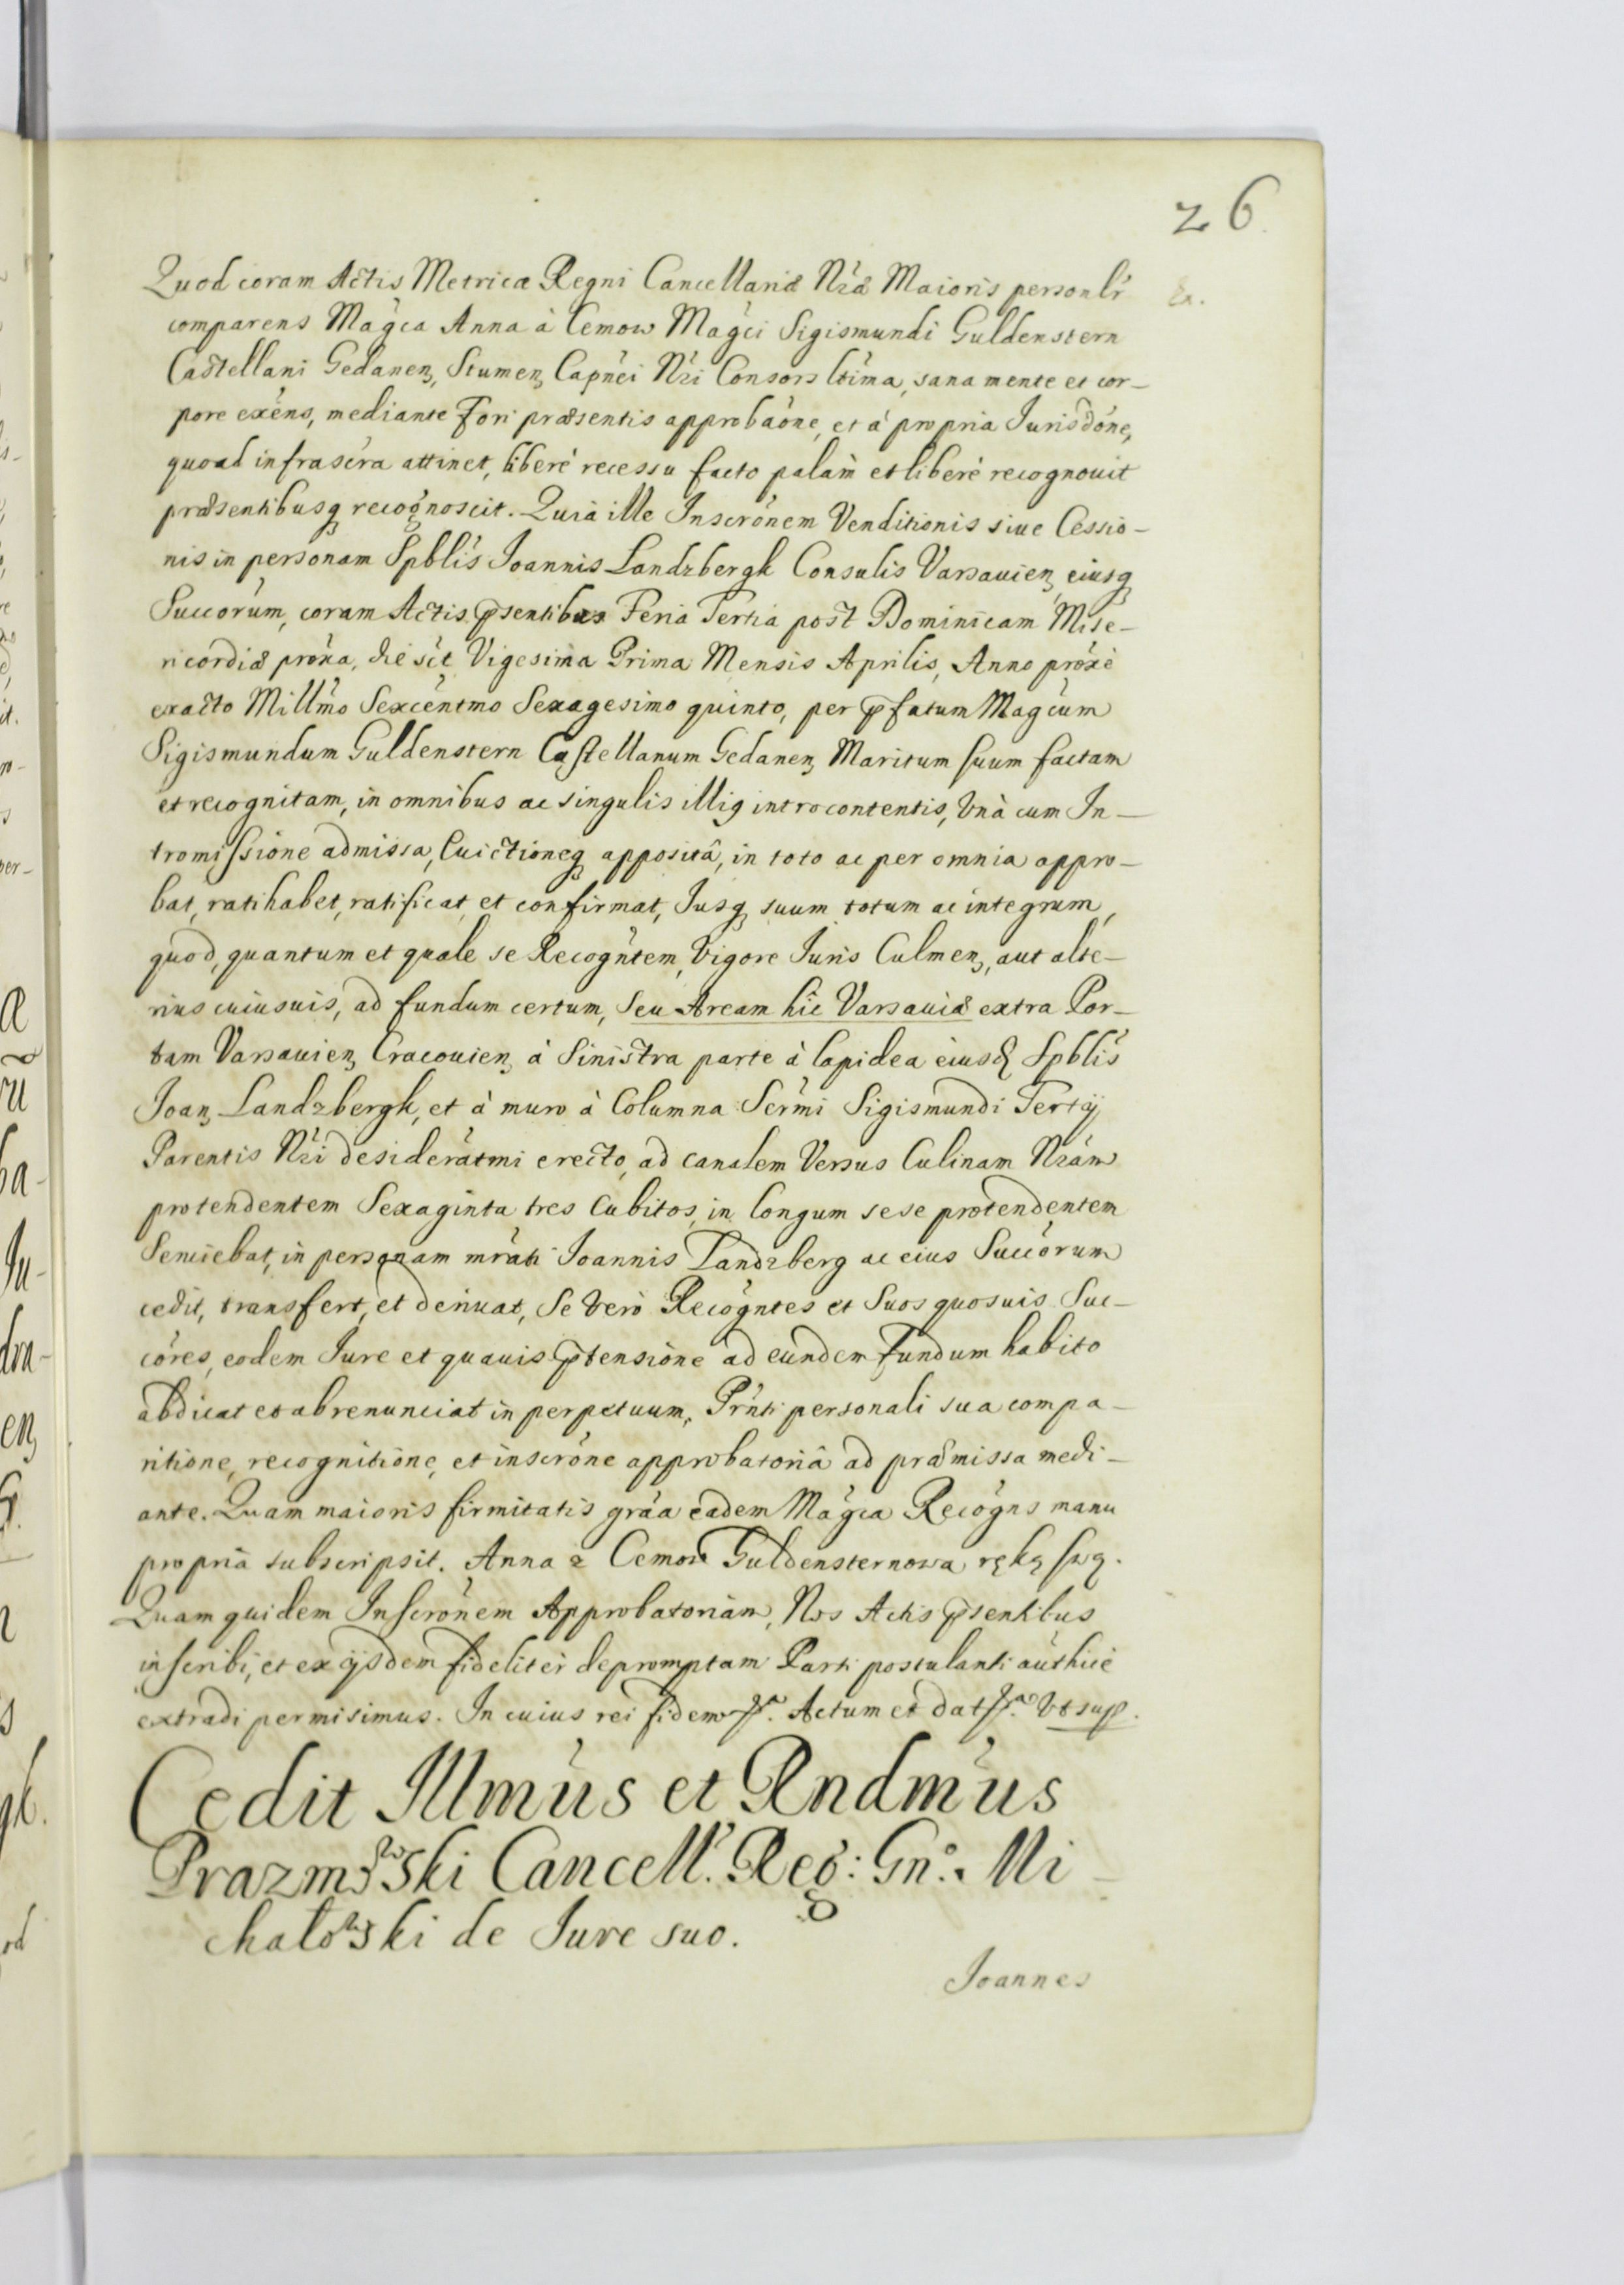 26
Quod coram Actis Metricæ Regni Cancellariæ Nræ Maioris personlr
comparens Magca Anna à Cemow Magci Sigismundi Guldenstern
Castellani Gedanen, Stumen, Capnei Nri Consors ltima, sana mente et cor-
pore exens, mediante Fori præsentis approbaone, et à propria Jurisdone,
quoad infrascra attinet, liberè recessu facto palàm et liberè recognouit
præsentibusq recognoscit. Quia ille Inscronem Venditionis siue Cessio-
nis in personam Spblis Joannis Landzbergk Consulis Varsauien, eiusq
Succorum, coram Actis psentibus Feria Tertia post Dominicam Mise-
ricordiæ proxa, die sct Vigesima Prima Mensis Aprilis, Anno proxè
exacto Millmo Sexcentmo Sexagesimo quinto, per pfatum Magcum
Sigismundum Guldenstern Castellanum Gedanen, Maritum suum factam
et recognitam, in omnibus ac singulis illiq introcontentis, Vnà cum In-
tromissione admissa, Euictioneq appositâ, in toto ac per omnia appro-
bat, ratihabet, ratificat, et confirmat, Jusq suum totum ac integrum,
quod, quantum et quale se Recogntem, Vigore Juris Culmen, aut alte-
rius cuiusuis, ad fundum certum, seu Aream hic Varsauiæ extra Por-
tam Varsauien, Cracouien, à Sinistra parte à lapidea eiusd Spblis
Joan, Landzbergk, et à muro à Columna Sermi Sigismundi Tertij
Parentis Nri desideratmi erecto, ad canalem Versus Culinam Nram
protendentem Sexaginta tres Cubitos, in longum sese protendentem
Seruiebat, in personam mrati Joannis Landzberg ac eius Succorum
cedit, transfert, et deriuat, Se Verò Recogntes et Suos quosuis Suc-
cores, eodem Jure et quauis ptensione ad eundem fundum habito
abdicat et abrenunciat in perpetuum, Prnti personali sua compa-
ritione, recognitione, et inscrone approbatoriâ ad præmissa medi-
ante. Quam maioris firmitatis graa eadem Magca Recogns manu
propria subscripsit. Anna z Cemow Guldensternowa ręką swą.
Quam quidem Inscronem Approbatoriam, Nos Actis psentibus
inscribi, et ex ijsdem fideliter depromptam Parti postulanti authice
extradi permisimus. In cuius rei fidem. Actum et dat. Vt sup.
Cedit Illmus et Rndmus
Prazmowski Cancell. Reg: Gn. Mi-
chałowski de Jure suo.
Joannes